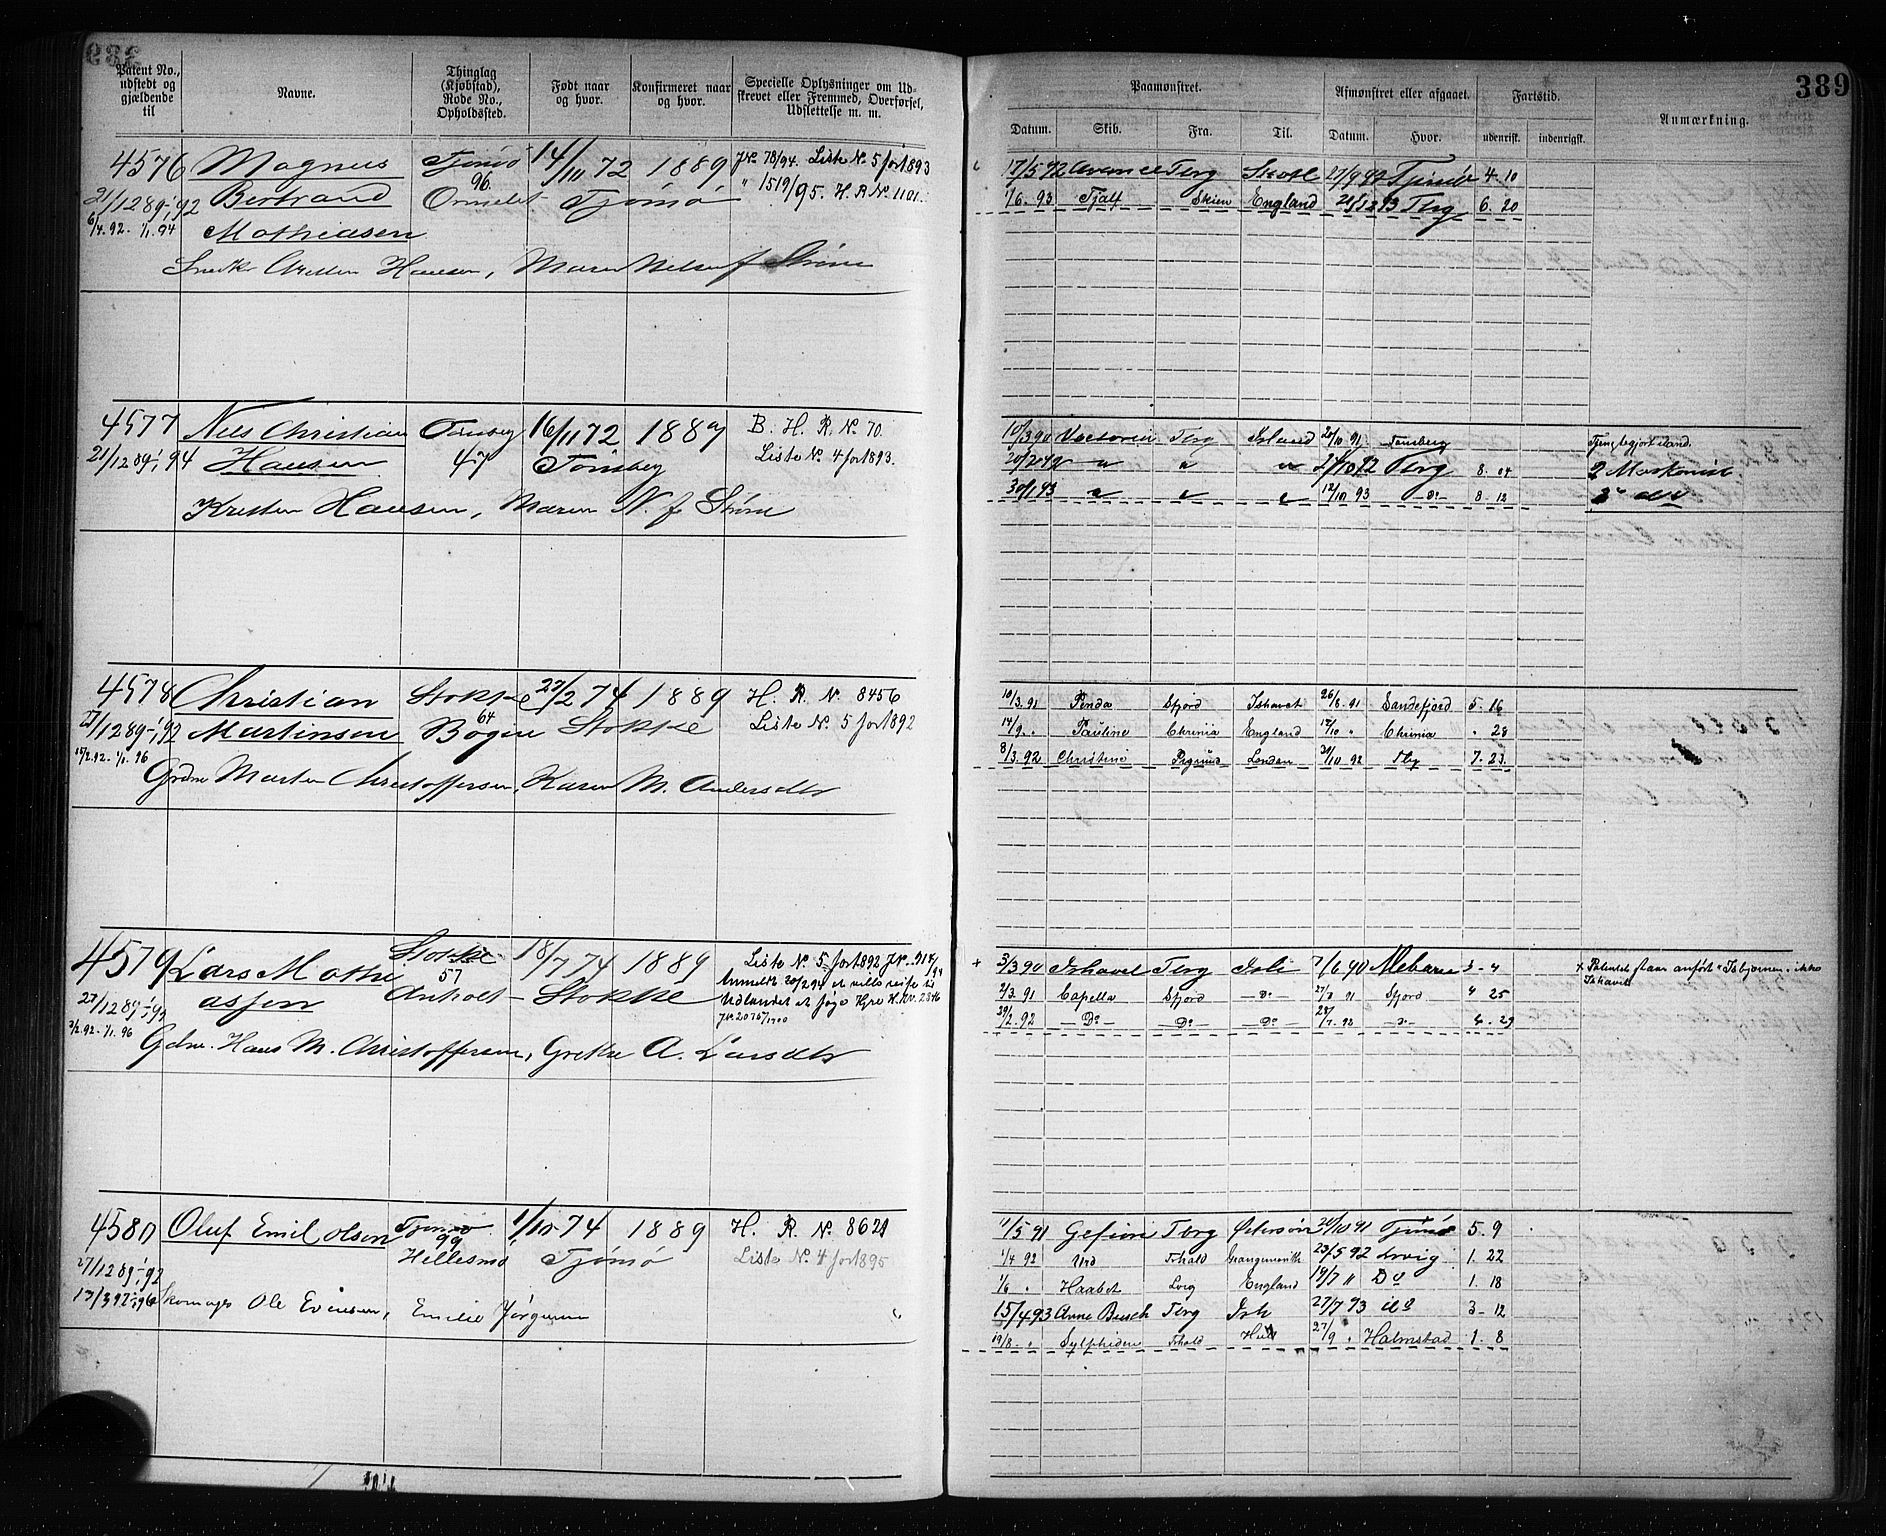 389
Patent No., udstedt og gjældende til
Navne.
Thinglag (Kjøbstad), Rode No., Opholdssted.
Født naar og hvor.
Konfirmeret naar og hvor.
Specielle Oplysninger om Udskrevet eller Fremmed, Overførsel, Udslettelse m. m.
Paamønstret.
Afmønstret eller afgaaet.
Fartstid.
Anmærkning.
Datum. Skib. Fra. Til. Datum. Hvor. udenrigst. indenrigst.
4576 Magnus Tjømø 14/11 72 1889 J.No. 78/94. Liste No. 5 for 1893
21/12 89-1/1 92 Bertrand 96. Ormelet Tjømø " 1519/95. H. R No. 1101.
6/4.92. 1/1.94 Mathiasen
Hansen, Maren
17/5 92 Tbrg 4. 10
1/6. 93 Fjalf Skien England 21/12 93 Tbrg 6. 20
4577 Nils Christian Tønsberg 16/11 72 1889 B. H. R. No. 70.
21/12 89-1/1 94 Hansen 47 Tønsberg Liste No. 4 for 1893.
Kristen Hansen, Maren N. f. Strøm
10/3 90 Tbrg Island 20/10 91 Tønsberg
20/2 92 " " " 21/10 92 Tbrg 8. 04
30/1 93 " " " 12/10 93 Do 8. 12
4578 Christian Stokke 27/2 74 1889 H. R. No. 8456
27/12 89-1/1 92 Martinsen 64 Bogen Stokke Liste No. 5 for 1892
15/2.92. 1/1. 96
Grdm. Martin Christoffersen, Karen M. Andersdtr
10/3.91 Penda Sfjord Ishavet 26/8. 91 Sandefjord 5. 16
14/9. " Pauline Chrinia England 12/10 " Chrinia " 28
8/3. 92 Christine London 29/10 92 Tbg 7. 23.
4579 Lars Mathi Stokke 18/7 74 1889 Liste No. 5 for 1892
27/12 89-1/1 92 assen 57 Anholt Stokke
2/2.92. 1/1. 96
Gdm. Hans M. Christoffersen, Grethe A. Larsdtr
+ 3/3 90 Ishavet Tbrg Ish 7/6 90 3 - 4 + Patentet staar anført "Isbjørnen" ikke Ishavet
2/3. 91 Capella Sfjord Do 27/8 91 Sfjord 4 25
29/2. 92 Do Do Do 28/7. 92 Do 4. 29
4580 Oluf Emil Olsen Tjømø 1/10 74 1889 H. R. No. 8621
27/12 89-1/1 92 99 Hillesmo Tjømø Liste No. 4 for 1895
Skomager Ole Evensen, Emilie Jørgensen
11/5 91 Gefion Tbrg 20/10 91 Tjømø 5. 9
1/4 92 Urd Frhald Grangemouth 23/5 92 Lrvig 1. 22
1/6 " Haabet Lvig England 19/7 " Do 1. 18
15/4 93 Anna Busch Tbrg Ish 27/7 93 3 - 12
19/8 - " Sylphiden Frhald Hull 27/9 " Halmstad 1. 8